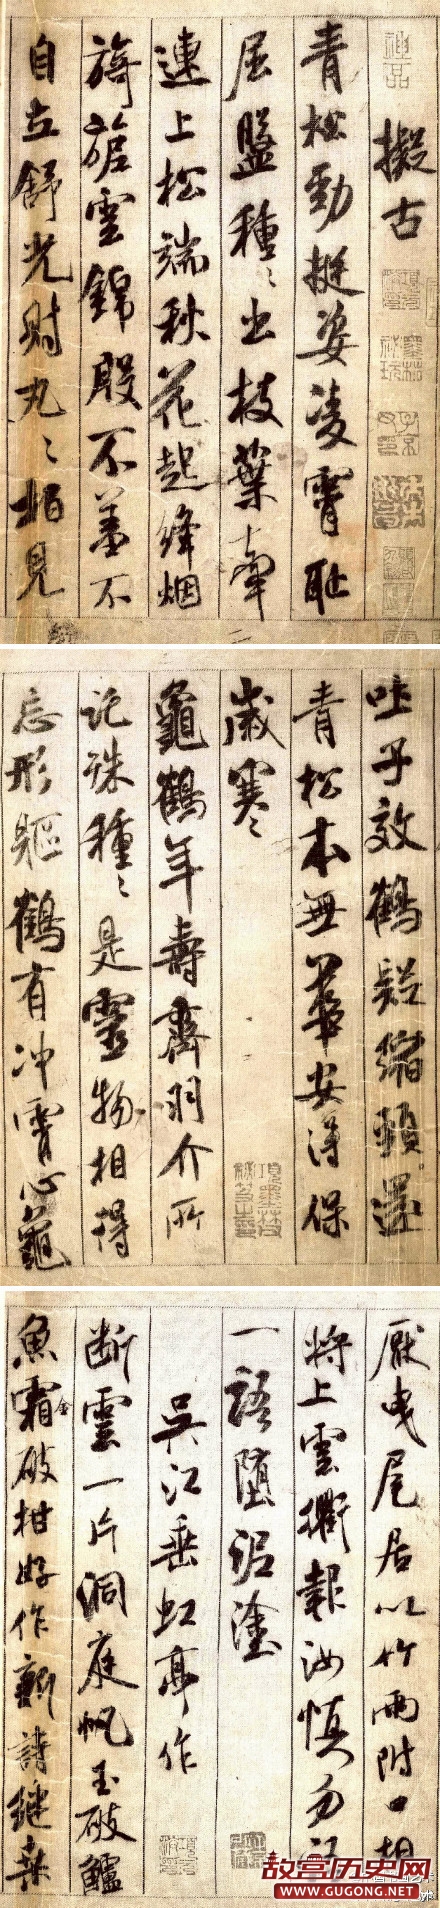 擬古
青松勁挺姿凌霄恥
屈盤種々出枝葉牽
連上松端秋花起絳烟
旖旎雲錦殷不羞不
自立舒光射丸々柏見
吐子效鶴疑縮頸還
青松本無華安得保
歲寒々
龜鶴年壽齊羽介所
託殊種々是靈物相得
忘形軀鶴有冲霄心龜
厭曳尾居以竹兩附口相
將上雲衢報汝慎勿語
一語墮泥塗
吳江垂虹亭作
断雲一片洞庭帆玉破鱸
魚霜金破柑好作新詩繼桑
故宫历史网
http://www.GUGONG.net